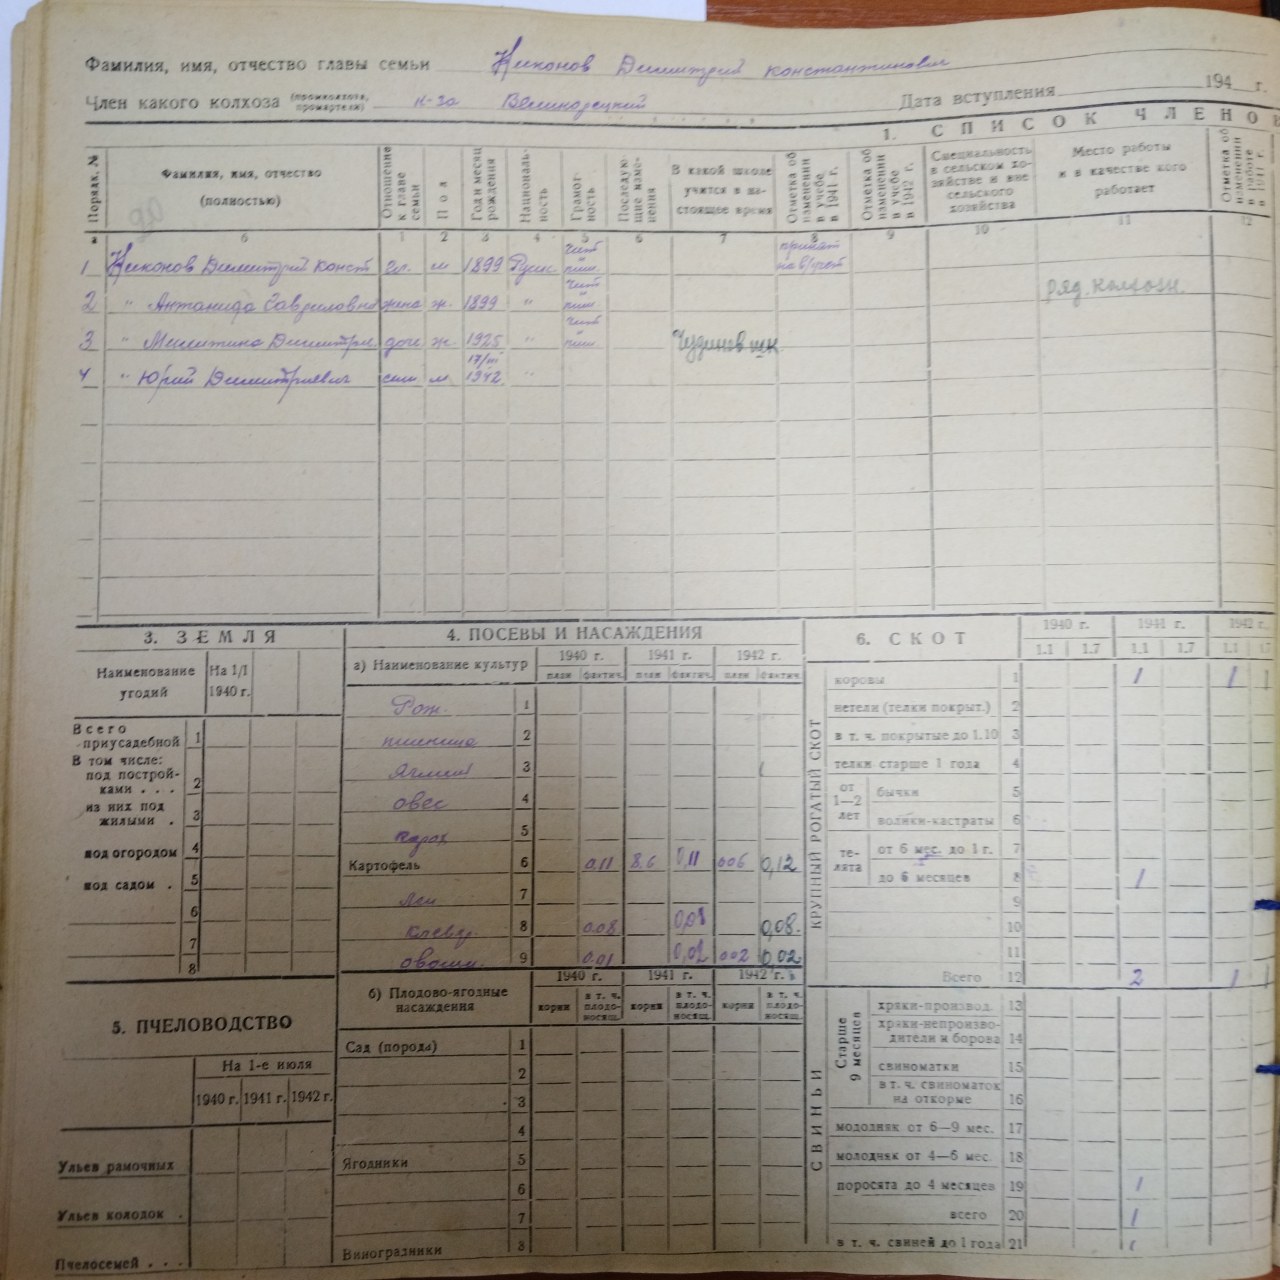 Фамилия, имя, отчество главы семьи Никонов Димитрий Константинович
Член какого колхоза (промколхоза, промартели) к-за Великорецкий Дата вступления 194 г.
1. СПИСОК ЧЛЕНОВ
Порядк. №
Фамилия, имя, отчество (полностью)
Отношение к главе семьи
Пол
Год и месяц рождения
Националь-ность
Грамот-ность
Последую-щие изме-нения
В какой школе учится в на-стоящее время
Отметка об изменении в учебе в 1941 г.
Отметка об изменении в учебе в 1942 г.
Специальность в сельском хо-зяйстве и вне сельского хозяйства
Место работы и в качестве кого работает
Отметка об изменении в работе в 1941 г.
90
а б 1 2 3 4 5 6 7 8 9 10 11 12
1 Никонов Димитрий Конст гл. м 1899 Русс. чит и пиш. призват на в/учет
2 " Антанида Гавриловна жена ж. 1899 " чит и пиш. ряд. колхозн.
3 " Димитри доч ж. 1925 " чит и пиш. Чудинов шк
4 " Юрий Димитриевич сын м 17/III 1942 "
3. ЗЕМЛЯ
Наименование угодий На 1/I 1940 г.
Всего приусадебной 1
В том числе: под построй-ками . . . 2
из них под жилыми . 3
под огородом 4
под садом . 5
6
7
8
5. ПЧЕЛОВОДСТВО
На 1-е июля
1940 г. 1941 г. 1942 г.
Ульев рамочных
Ульев колодок .
Пчелосемей . . .
4. ПОСЕВЫ И НАСАЖДЕНИЯ
а) Наименование культур 1940 г. 1941 г. 1942 г.
план фактич. план фактич. план фактич.
Рож. 1
пшеница 2
Ячмень 3
овес 4
горох 5
Картофель 6 0.11 0,11 006 0,12
Лен 7
Клевер. 8 0.08 0,08 0,08.
овощи. 9 0.01 0,02 002 0,02
б) Плодово-ягодные насаждения 1940 г. 1941 г. 1942 г.
корни в т. ч. плодо-носящ. корни в т. ч. плодо-носящ. корни в т. ч. плодо-носящ.
Сад (порода) 1
2
3
4
Ягодники 5
6
7
Виноградники 8
6. СКОТ
1940 г. 1941 г. 1942 г.
1.1 1.7 1.1 1.7 1.1 1.7
КРУПНЫЙ РОГАТЫЙ СКОТ
коровы 1 1 1 1
нетели (телки покрыт.) 2
в т. ч. покрытые до 1.10 3
телки старше 1 года 4
от 1—2 лет
бычки 5
волики-кастраты 6
те-лята
от 6 мес. до 1 г. 7
до 6 месяцев 8 1
9
10
11
Всего 12 2 1 1
СВИНЬИ
Старше 9 месяцев
хряки-производ. 13
хряки-непроизво-дители и борова 14
свиноматки 15
в т. ч. свиноматок на откорме 16
молодняк от 6—9 мес. 17
молодняк от 4—6 мес. 18
поросята до 4 месяцев 19 1
всего 20 1
в т. ч. свиней до 1 года 21 1